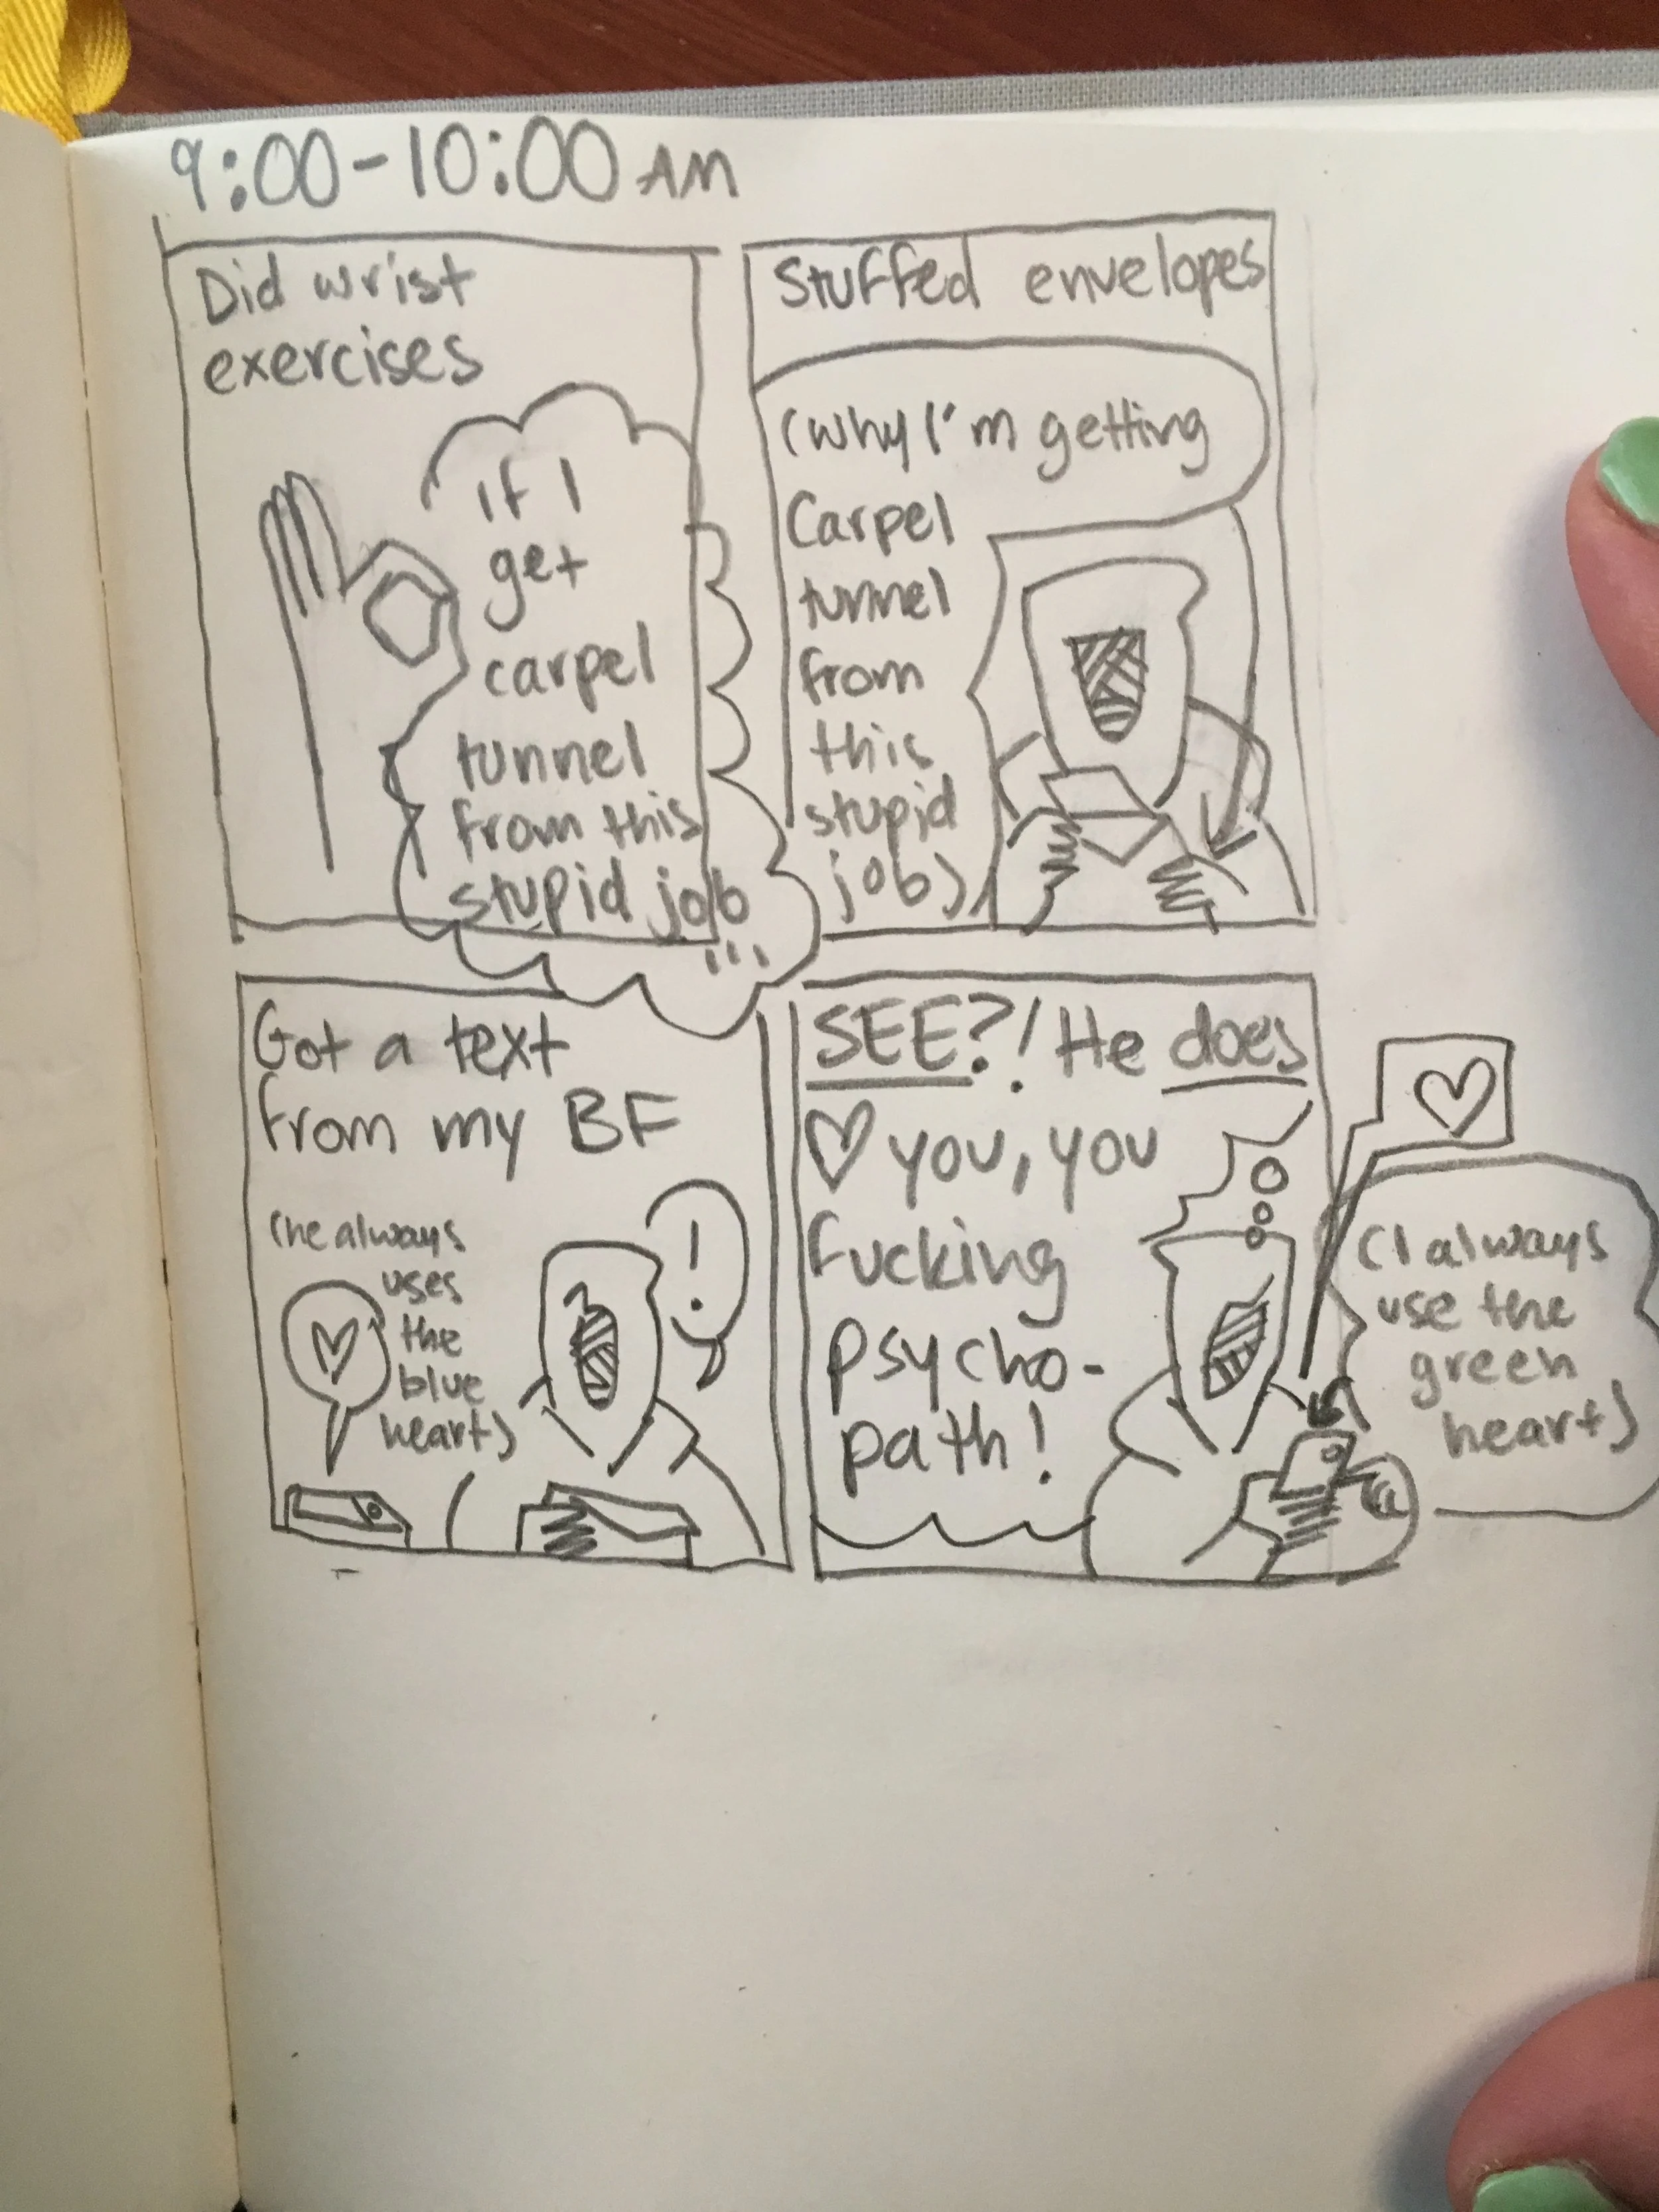 9:00-10:00 AM
Did wrist
exercises
If I
get
carpel
tunnel
from this
stupid job
...
Stuffed envelopes
(Why I'm getting
Carpel
tunnel
from
this
stupid
job)
Got a text
from my BF
(he always
uses
the
blue
heart)
!
SEE?! He does
♡ you, you
fucking
psycho-
path!
(I always
use the
green
heart)